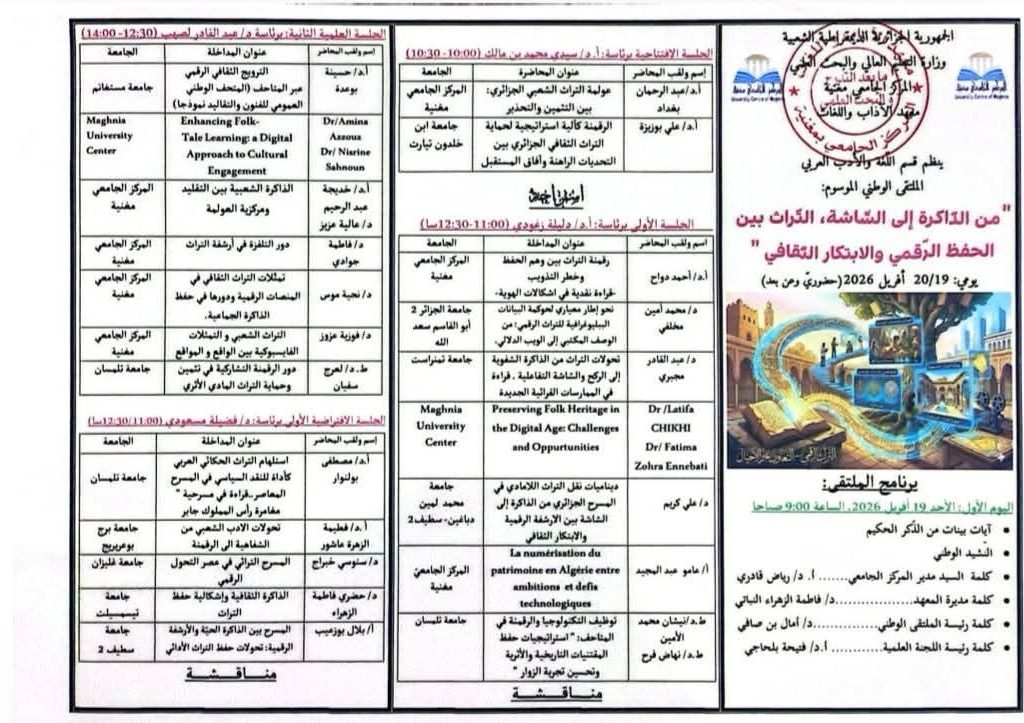 الجمهورية الجزائرية الديمقراطية الشعبية
وزارة التعليم العالي والبحث العلمي
المركز الجامعي مغنية
معهد الآداب واللغات
ينظم قسم اللغة والأدب العربي
الملتقى الوطني الموسوم:
"من الذاكرة إلى الشاشة، التراث بين
الحفظ الرقمي والابتكار الثقافي "
يومي: 20/19 أفريل 2026(حضوري وعن بعد)
برنامج الملتقى:
اليوم الأول: الأحد 19 أفريل 2026، الساعة 9:00 صباحا
• آيات بينات من الذكر الحكيم
• النشيد الوطني
• كلمة السيد مدير المركز الجامعي....... أ. د/ رياض قادري
• كلمة مديرة المعهد..............د/ فاطمة الزهراء النباتي
• كلمة رئيسة الملتقى الوطني............د/ أمال بن صافي
• كلمة رئيسة اللجنة العلمية........... أ.د/ فتيحة بلحاجي
الجلسة الافتتاحية برئاسة: أ. د/ سيدي محمد بن مالك (10:00- 10:30)
إسم ولقب المحاضر عنوان المحاضرة الجامعة
أ.د/عبد الرحمان عولمة التراث الشعبي الجزائري: المركز الجامعي
بغداد بين التثمين والتحذير مغنية
أ.د/ علي بوزيزة الرقمنة كآلية استراتيجية لحماية جامعة ابن
التراث الثقافي الجزائري بين خلدون تيارت
التحديات الراهنة وآفاق المستقبل
استراحة
الجلسة الأولى برئاسة: أ.د/ دليلة زغودي (11:00-12:30سا)
إسم ولقب المحاضر عنوان المداخلة الجامعة
أ.د/ أحمد دواح رقمنة التراث بين وهم الحفظ المركز الجامعي
وخطر التذويب مغنية
-قراءة نقدية في اشكالات الهوية-
د/ محمد أمين نحو إطار معياري لحوكمة البيانات جامعة الجزائر 2
مخلفي الببليوغرافية للتراث الرقمي: من أبو القاسم سعد
الوصف المكتبي إلى الويب الدلالي. الله
د/ عبد القادر تحولات التراث من الذاكرة الشفوية جامعة تمنراست
مجبري إلى الركح والشاشة التفاعلية . قراءة
في الممارسات القرائية الجديدة
Dr /Latifa Preserving Folk Heritage in Maghnia
CHIKHI the Digital Age: Challenges University
Dr/ Fatima and Oppurtunities Center
Zohra Ennebati
د/ علي كريم ديناميات نقل التراث اللامادي في جامعة
المسرح الجزائري من الذاكرة إلى محمد لمين
الشاشة بين الارشفة الرقمية دباغين- سطيف2
والابتكار الثقافي
أ/ عامو عبد المجيد La numérisation du المركز الجامعي
patrimoine en Algérie entre مغنية
ambitions et defis
technologiques
ط.د/نيشان محمد توظيف التكنولوجيا والرقمنة في جامعة تلمسان
الأمين المتاحف: " استراتيجيات حفظ
ط.د/ نهاض فرح المقتنيات التاريخية والأثرية
وتحسين تجربة الزوار "
مناقشة
الجلسة العلمية الثانية: برئاسة د/ عبد القادر لصهب (12:30- 14:00)
إسم ولقب المحاضر عنوان المداخلة الجامعة
أ.د/ حسينة الترويج الثقافي الرقمي جامعة مستغانم
بوعدة عبر المتاحف (المتحف الوطني
العمومي للفنون والتقاليد نموذجا)
Dr/Amina Enhancing Folk- Maghnia
Azzouz Tale Learning: a Digital University
Dr/ Nisrine Approach to Cultural Center
Sahnoun Engagement
أ.د/ خديجة الذاكرة الشعبية بين التقليد المركز الجامعي
عبد الرحيم ومركزية العولمة مغنية
د/ عالية عزيز
د/ فاطمة دور التلفزة في أرشفة التراث المركز الجامعي
جوادي مغنية
د/ نجية موس تمثلات التراث الثقافي في المركز الجامعي
المنصات الرقمية ودورها في حفظ مغنية
الذاكرة الجماعية.
د/ فوزية عزوز التراث الشعبي و التمثلات المركز الجامعي
الفايسبوكية بين الواقع و المواقع مغنية
ط.د/ لعرج دور الرقمنة التشاركية في تثمين جامعة تلمسان
سفيان وحماية التراث المادي الأثري
الجلسة الافتراضية الأولى برئاسة: د/ فضيلة مسعودي (12:30/11:00سا)
إسم ولقب المحاضر عنوان المداخلة الجامعة
أ.د/ مصطفى استلهام التراث الحكائي العربي جامعة تلمسان
بولنوار كأداة للنقد السياسي في المسرح
المعاصر..قراءة في مسرحية "
مغامرة رأس المملوك جابر
أ.د/ فطيمة تحولات الادب الشعبي من جامعة برج
الزهرة عاشور الشفاهية الى الرقمنة بوعريريج
د/ سنوسي خبراج المسرح التراثي في عصر التحول جامعة غليزان
الرقمي
د/ حضري فاطمة الذاكرة الثقافية وإشكالية حفظ جامعة
الزهراء التراث تيسمسيلت
أ/ بلال بوزميب المسرح بين الذاكرة الحية والأرشفة جامعة
الرقمية: تحولات حفظ التراث الأدائي سطيف 2
مناقشة